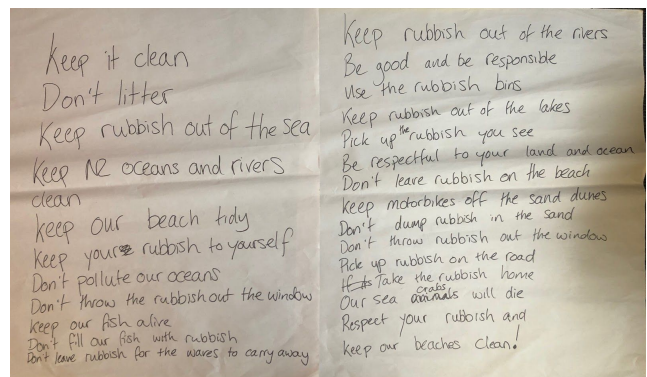 Keep it clean
Don't litter
Keep rubbish out of the sea
Keep NZ oceans and rivers
clean
keep our beach tidy
Keep your rubbish to yourself
Don't pollute our oceans
Don't throw the rubbish out the window
keep our fish alive
Don't fill our fish with rubbish
Don't leave rubbish for the waves to carry away
Keep rubbish out of the rivers
Be good and be responsible
Use the rubbish bins
Keep rubbish out of the lakes
Pick up the rubbish you see
Be respectful to your land and ocean
Don't leave rubbish on the beach
keep motorbikes off the sand dunes
Don't dump rubbish in the sand
Don't throw rubbish out the window
Pick up rubbish on the road
Take the rubbish home
Our sea animals crabs will die
Respect your rubbish and
keep our beaches clean!